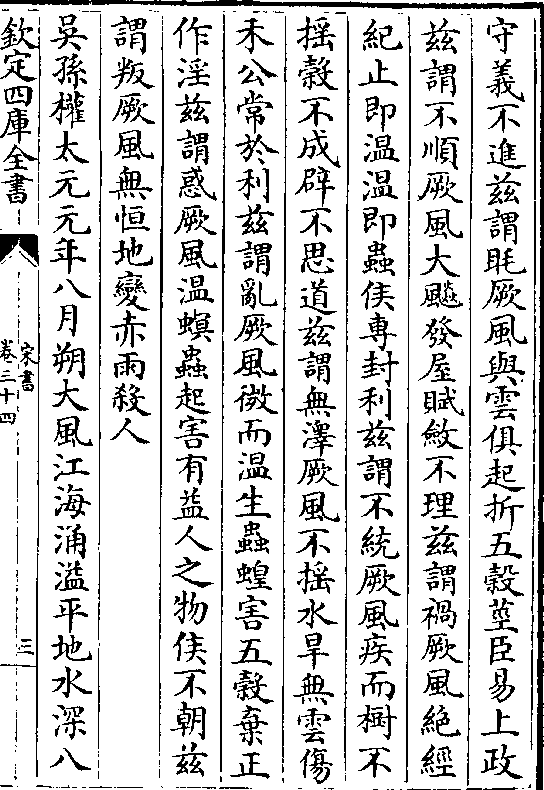 守義不進兹謂眊厥風與雲俱起折五榖莖臣易上政
兹謂不順厥風大飈發屋賦斂不理兹謂禍厥風絶經
紀止即温温即蟲侯專封利兹謂不統厥風疾而樹不
揺榖不成辟不思道兹謂無澤厥風不揺水旱無雲傷
禾公常於利兹謂亂厥風微而温生蟲蝗害五榖棄正
作淫兹謂惑厥風温螟蟲起害有益人之物侯不朝兹
謂叛厥風無恒地變赤雨殺人
吳孫權太元元年八月朔大風江海涌溢平地水深八
欽定四庫全書
宋書
卷三十四
三